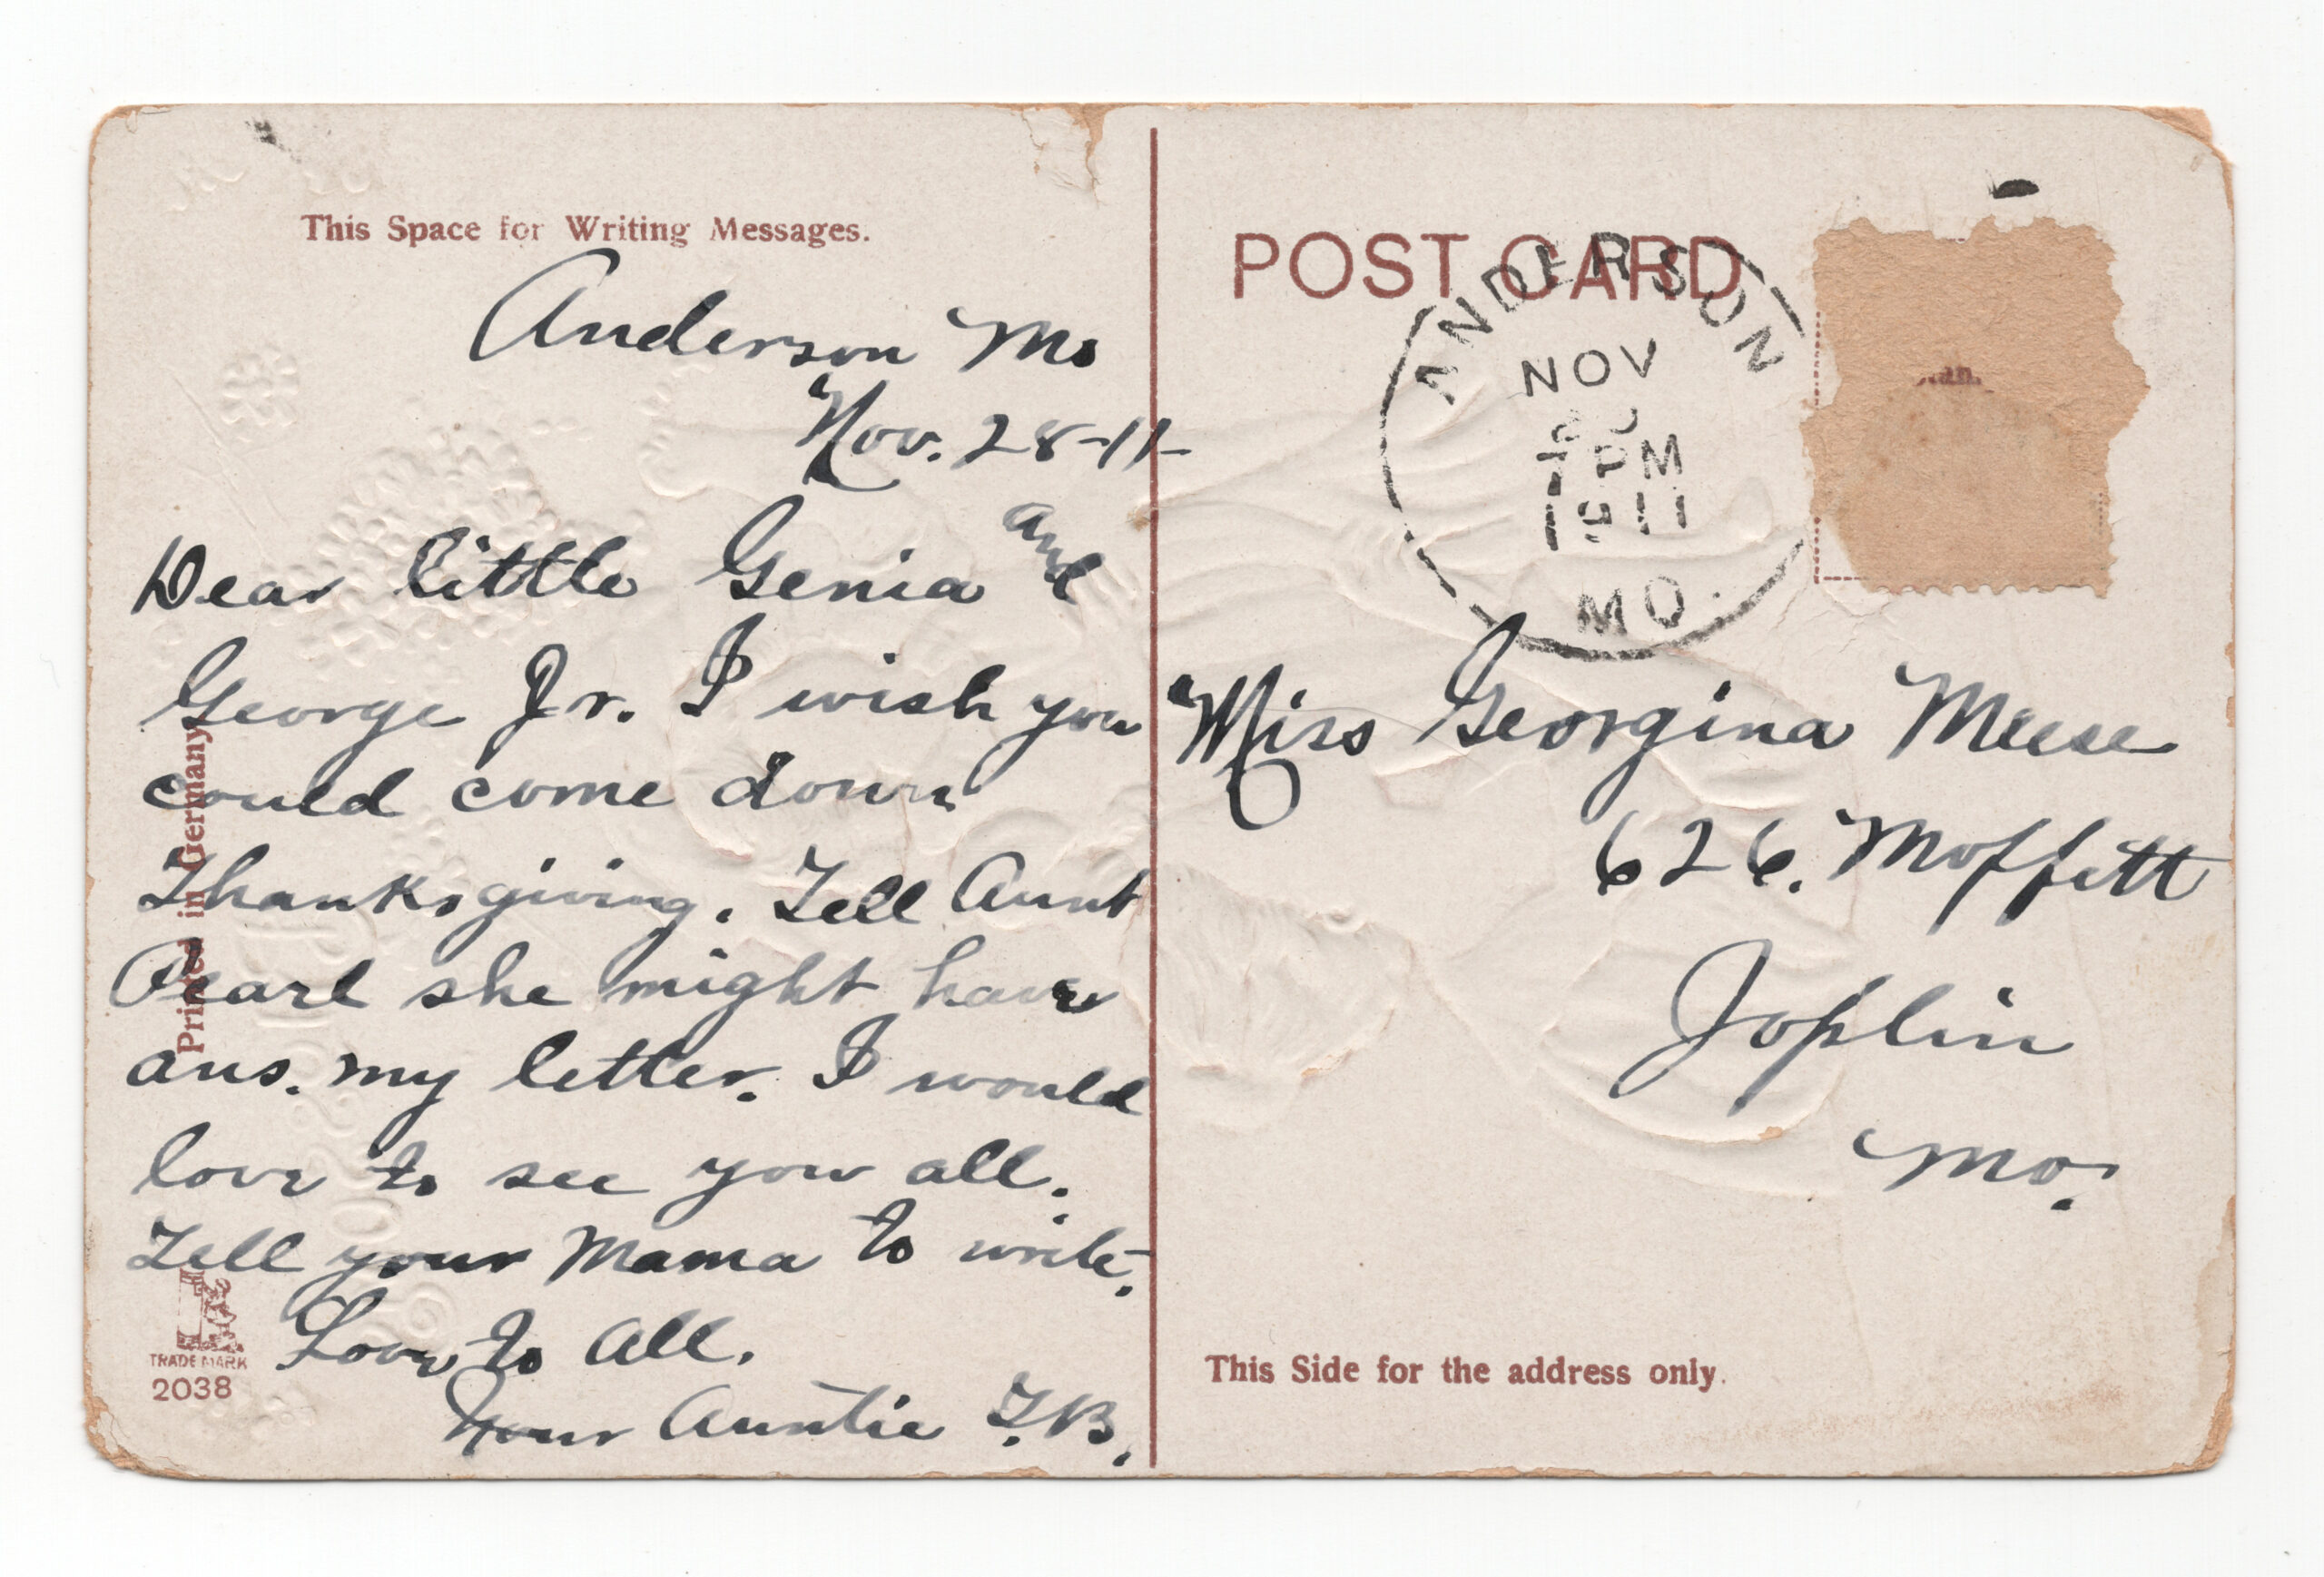 This Space for Writing Messages.
Anderson Mo
Nov. 28-11-
Dear little Genia and
George Jr. I wish you
could come down
Thanksgiving. Tell Aunt
Pearl she might have
ans. my letter. I would
love to see you all.
Tell your Mama to write.
Love to All.
Your Auntie T.B.
Printed in Germany
TRADE MARK
2038
POST CARD
ANDERSON
NOV
PM
1911
MO.
Miss Georgina Meese
626. Moffitt
Joplin
Mo.
This Side for the address only.